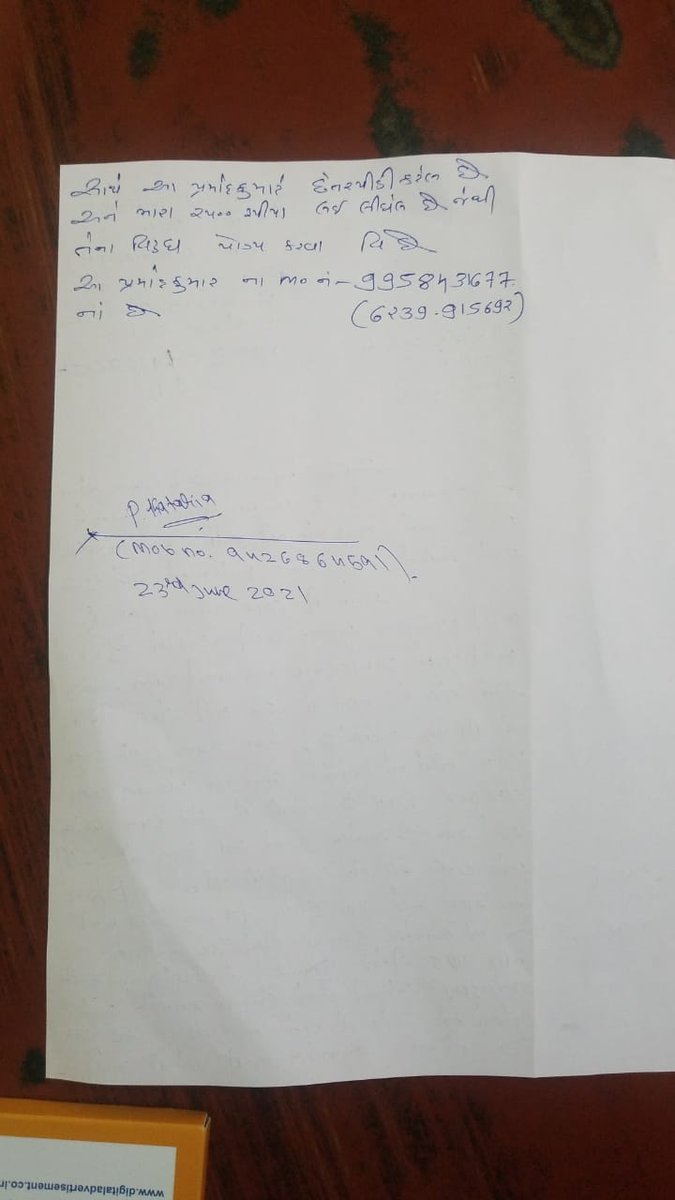 સાથે આ પ્રમોદકુમારે છેતરપીંડી કરેલ છે
અને મારા ૨૫૦૦ રૂપીયા લઈ લીધેલ છે જેથી
તેના વિરૂધ્ધ યોગ્ય કરવા વિ છે
આ પ્રમોદકુમાર ના mo નં - 9958431677
નાં છે (6239.915692)
P. Kataria
(Mob no. 9426864591).
23rd June 2021
www.digitaladvertisement.co.in